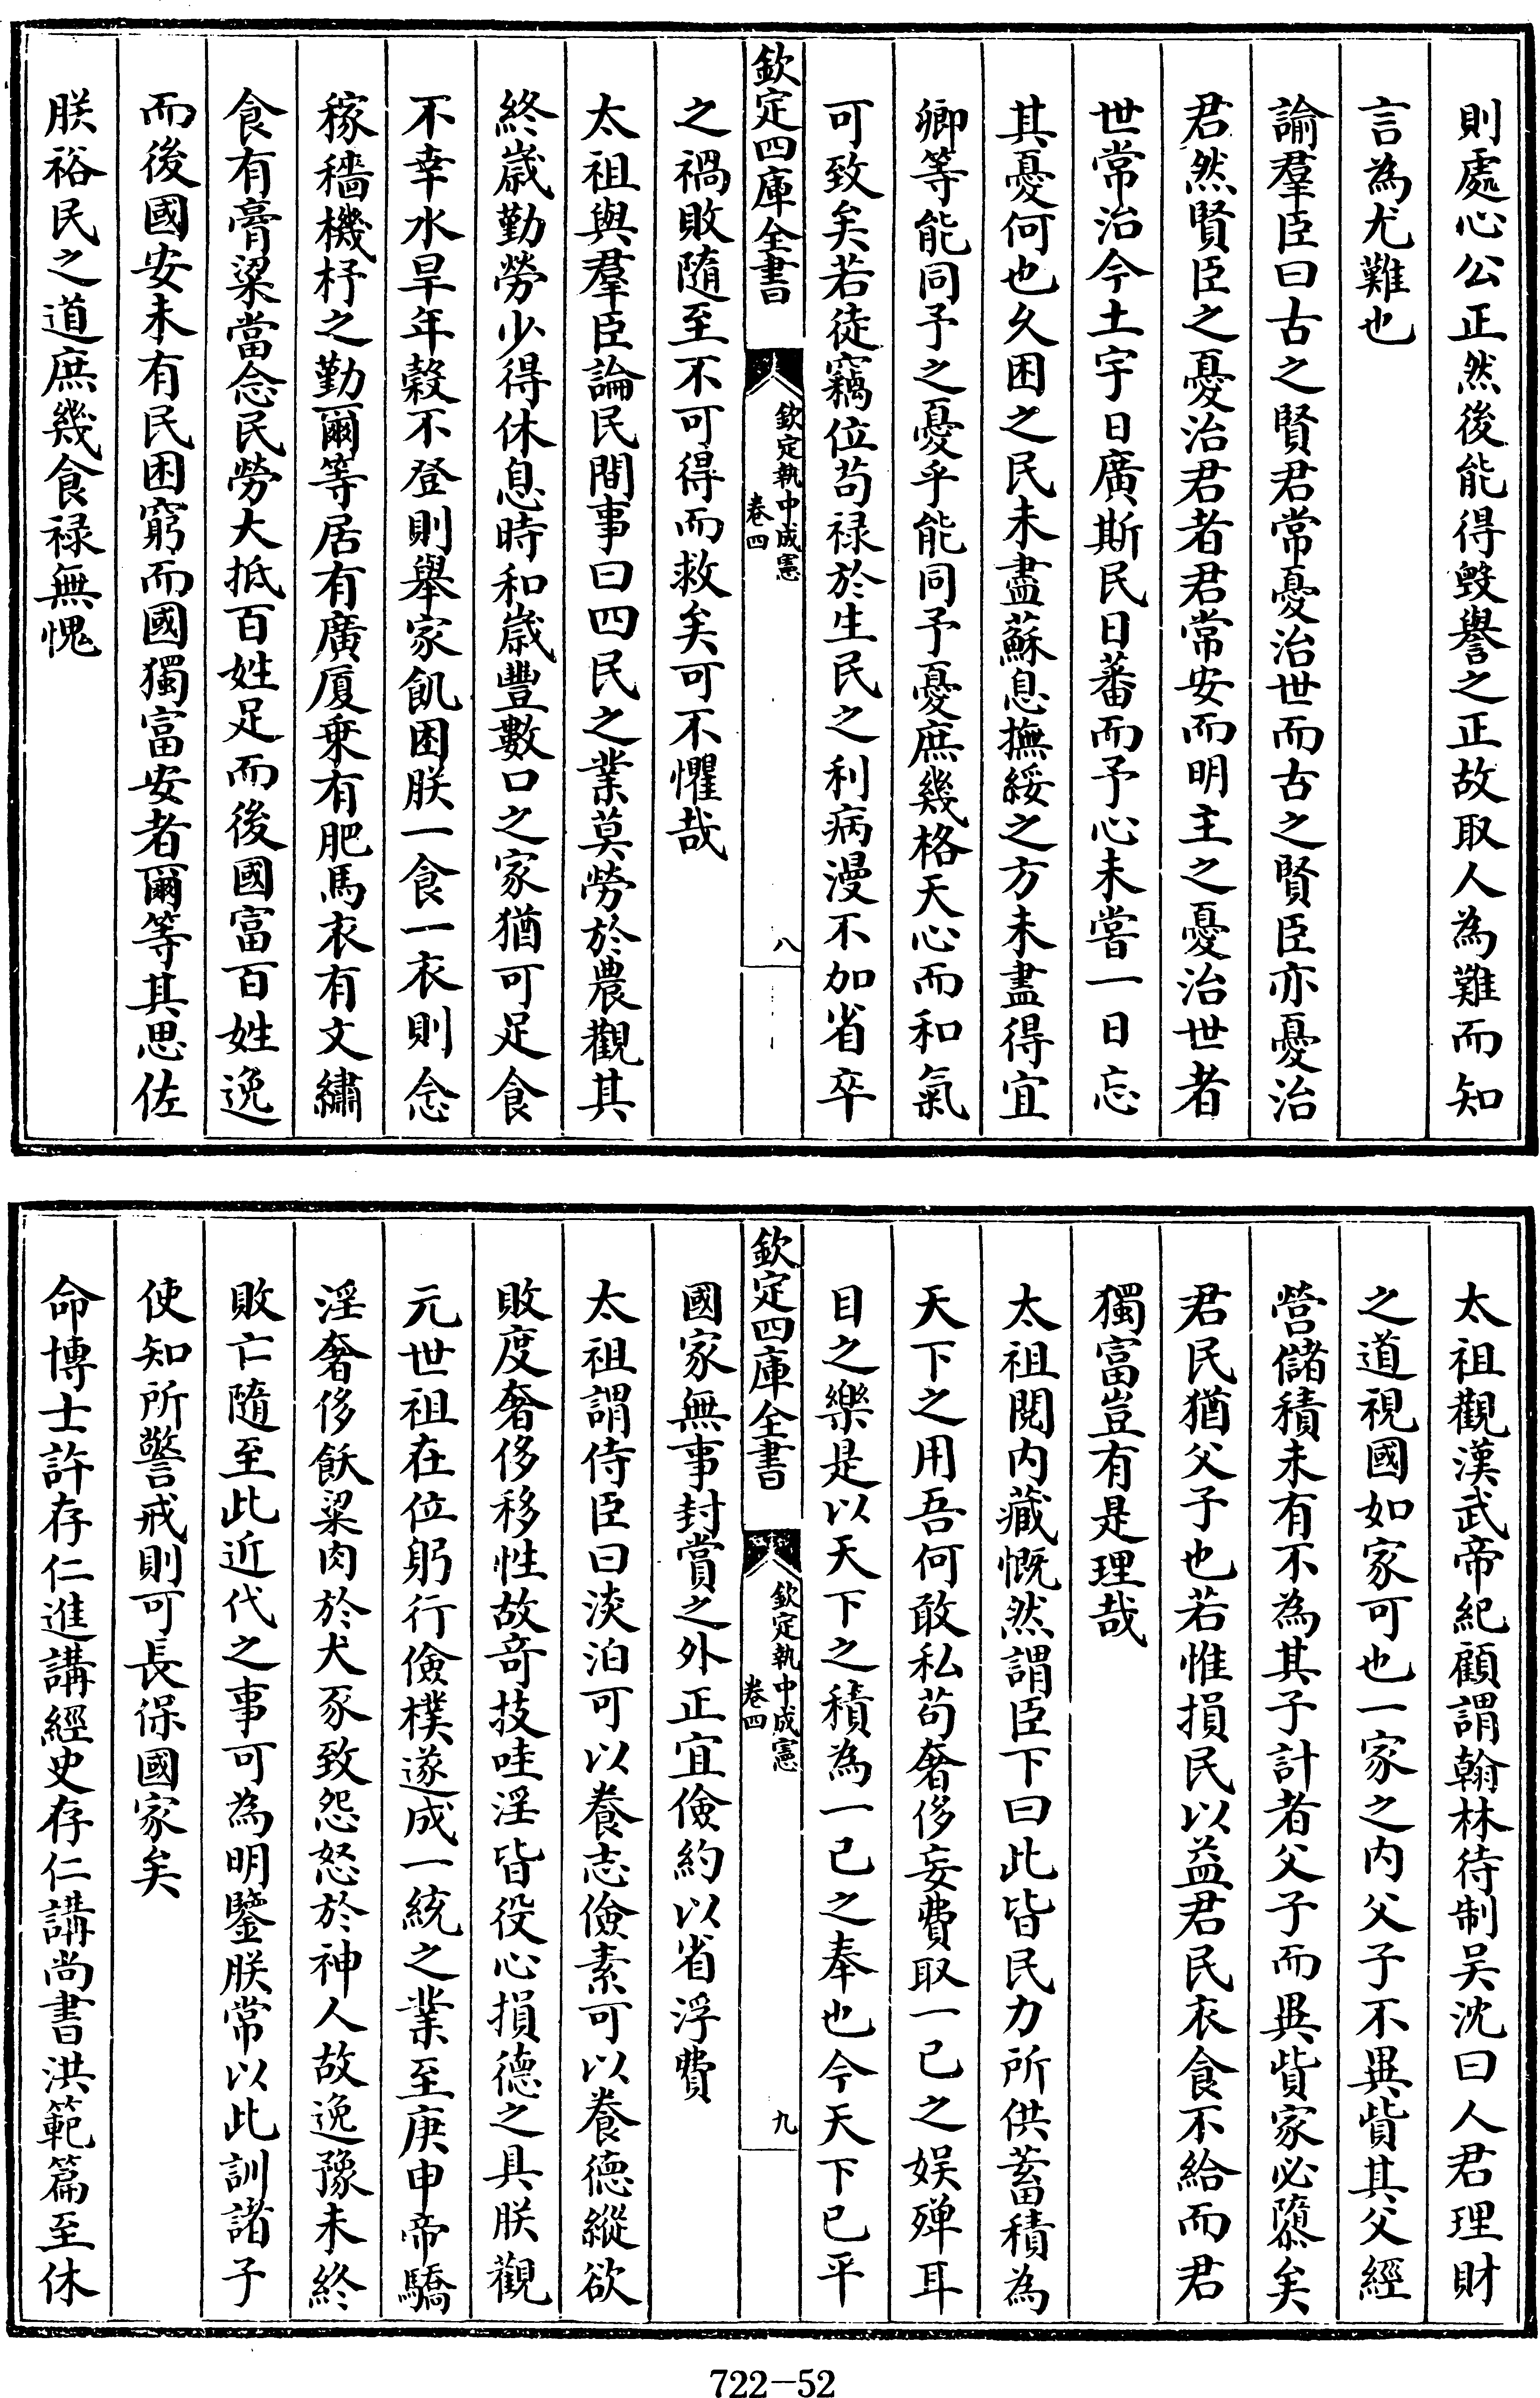 則處心公正然後能得毀譽之正故取人為難而知
言為尤難也
諭羣臣曰古之賢君常憂治世而古之賢臣亦憂治
君然賢臣之憂治君者君常安而明主之憂治世者
世常治今土宇日廣斯民日蕃而予心未嘗一日忘
其憂何也久困之民未盡蘇息撫綏之方未盡得宜
卿等能同予之憂乎能同予憂庶幾格天心而和氣
可致矣若徒竊位茍禄於生民之利病漫不加省卒
欽定四庫全書
欽定執中成憲
卷四
八
之禍敗隨至不可得而救矣可不懼哉
太祖與羣臣論民間事曰四民之業莫勞於農觀其
終歲勤勞少得休息時和歲豐數口之家猶可足食
不幸水旱年穀不登則舉家飢困朕一食一衣則念
稼穡機杼之勤爾等居有廣厦乗有肥馬衣有文繡
食有膏粱當念民勞大抵百姓足而後國富百姓逸
而後國安未有民困窮而國獨富安者爾等其思佐
朕裕民之道庶幾食禄無愧
太祖觀漢武帝紀顧謂翰林待制吴沈曰人君理財
之道視國如家可也一家之内父子不異貲其父經
營儲積未有不為其子計者父子而異貲家必隳矣
君民猶父子也若惟損民以益君民衣食不給而君
獨富豈有是理哉
太祖閱内藏慨然謂臣下曰此皆民力所供蓄積為
天下之用吾何敢私茍奢侈妄費取一己之娱殫耳
目之樂是以天下之積為一己之奉也今天下已平
欽定四庫全書
欽定執中成憲
卷四
九
國家無事封賞之外正宜儉約以省浮費
太祖謂侍臣曰淡泊可以養志儉素可以養德縱欲
敗度奢侈移性故竒技哇淫皆役心損德之具朕觀
元世祖在位躬行儉樸遂成一統之業至庚申帝驕
淫奢侈飫粱肉於犬豕致怨怒於神人故逸豫未終
敗亡隨至此近代之事可為明鑒朕常以此訓諸子
使知所警戒則可長保國家矣
命博士許存仁進講經史存仁講尚書洪範篇至休
722-52